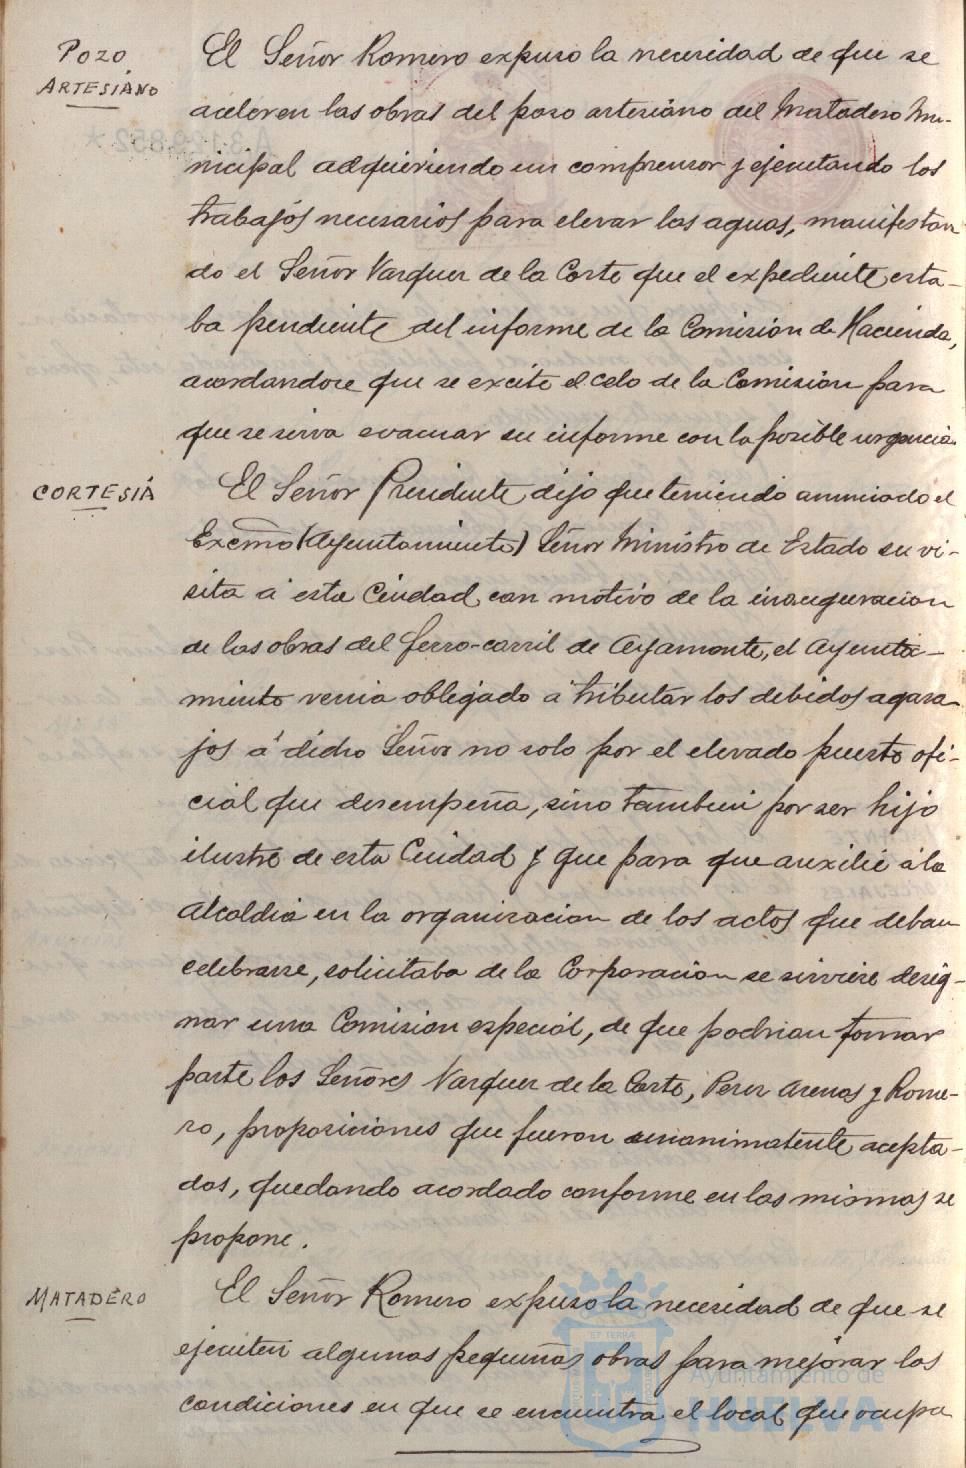 POZO
ARTESIANO
El Señor Romero expuso la necesidad de que se
aceleren las obras del pozo artesiano del Matadero Mu-
nicipal adquiriendo un compresor y ejecutando los
trabajos necesarios para elevar las aguas, manifestan
do el Señor Vazquez de la Corte que el expediente esta-
ba pendiente del informe de la Comision de Hacienda,
acordandose que se excite el celo de la Comision para
que se sirva evacuar su informe con la posible urgencia.
CORTESIA
El Señor Presidente dijo que teniendo anunciado el
Excmo (Ayuntamiento) Señor Ministro de Estado su vi-
sita á esta Ciudad con motivo de la inauguracion
de las obras del ferro-carril de Ayamonte, el Ayunta-
miento venia obligado á tributar los debidos agasa-
jos á dicho Señor no solo por el elevado puesto ofi-
cial que desempeña, sino tambien por ser hijo
ilustre de esta Ciudad y que para que auxilie á la
Alcaldia en la organizacion de los actos que deban
celebrarse, solicitaba de la Corporacion se sirviese desig-
nar una Comision especial, de que podrian formar
parte los Señores Vazquez de la Corte, Perez Arenas y Rome-
ro, proposiciones que fueron unanimatente acepta-
das, quedando acordado conforme en las mismas se
propone.
MATADERO
El Señor Romero expuso la necesidad de que se
ejecuten algunas pequeñas obras para mejorar las
condiciones en que se encuentra el local que ocupa
Ayuntamiento de
HUELVA